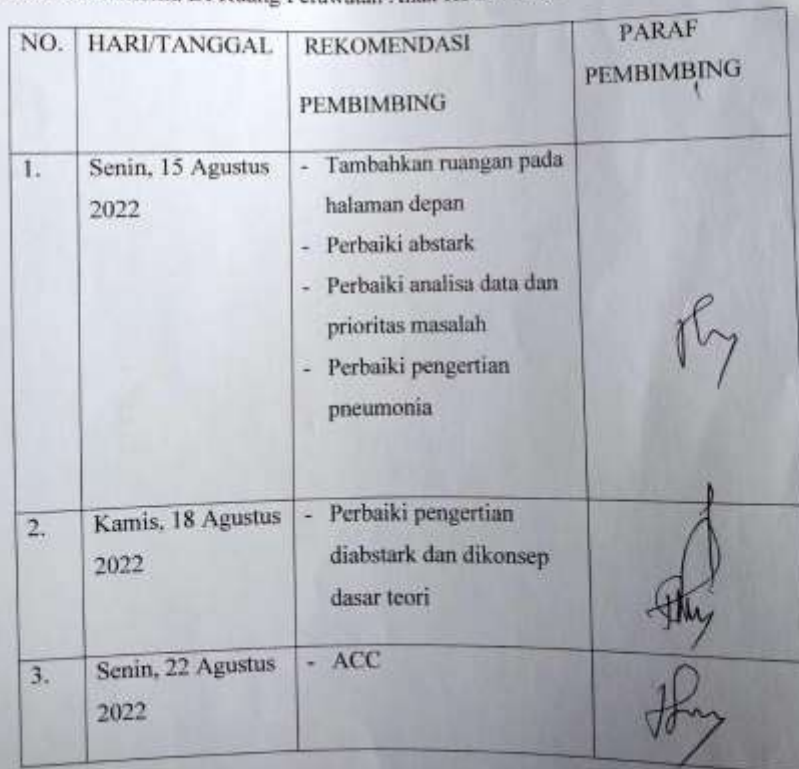 Ruang Perawatan Anak
NO. HARI/TANGGAL REKOMENDASI PEMBIMBING PARAF PEMBIMBING
1. Senin, 15 Agustus 2022
- Tambahkan ruangan pada
halaman depan
- Perbaiki abstark
- Perbaiki analisa data dan
prioritas masalah
- Perbaiki pengertian
pneumonia
2. Kamis, 18 Agustus 2022
- Perbaiki pengertian
diabstark dan dikonsep
dasar teori
3. Senin, 22 Agustus 2022
- ACC